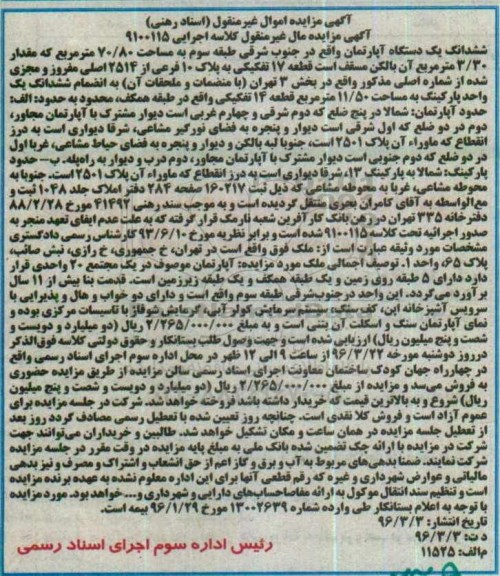 آگهی مزایده اموال غیرمنقول (اسناد رهنی)
آگهی مزایده مال غیرمنقول کلاسه اجرایی ۹۱۰۰۱۱۵
ششدانگ یک دستگاه آپارتمان واقع در جنوب شرقی طبقه سوم به مساحت ۷۰/۸۰ مترمربع که مقدار
۳/۳۰ مترمربع آن بالکن مسقف است قطعه ۱۷ تفکیکی به پلاک ۱۰ فرعی از ۲۵۱۴ اصلی مفروز و مجزی
شده از شماره اصلی مذکور واقع در بخش ۳ تهران (با متضمات و ملحقات آن) به انضمام ششدانگ یک
واحد پارکینگ به مساحت ۱۱/۵۰ مترمربع قطعه ۱۴ تفکیکی واقع در طبقه همکف، محدود به حدود: الف:
حدود آپارتمان: شمالا در پنج ضلع که دوم شرقی و چهارم غربی است دیوار مشترک با آپارتمان مجاور،
دوم در دو ضلع که اول شرقی است دیوار و پنجره به فضای نورگیر مشاعی، شرقا دیواری است به درز
انقطاع که ماوراء آن پلاک ۲۵۰۱ است، جنوبا لبه بالکن و دیوار و پنجره به فضای حیاط مشاعی، غربا اول
در دو ضلع که دوم جنوبی است دیوار مشترک با آپارتمان مجاور، دوم درب و دیوار به راه‌پله. ب– حدود
پارکینگ: شمالا به پارکینگ ۱۳، شرقا دیواری است به درز انقطاع که ماوراء آن پلاک ۲۵۰۱ است. جنوبا به
محوطه مشاعی، غربا به محوطه مشاعی که ذیل ثبت ۱۶۰۲۱۷ صفحه ۲۸۴ دفتر املاک جلد ۱۰۴۸ ثبت و
مع‌الواسطه به آقای کامران بحوی منتقل گردیده است و به موجب سند رهنی ۴۱۴۹۲ مورخ ۸۸/۲/۲۸
دفترخانه ۳۳۵ تهران در رهن بانک کارآفرین شعبه نارمک قرار گرفته که به علت عدم ایفای تعهد منجر به
صدور اجرائیه تحت کلاسه ۹۱۰۰۱۱۵ شده است و برابر نظریه مورخ ۹۳/۶/۱۰ کارشناس رسمی دادگستری
مشخصات مورد وثیقه عبارت است از: ملک فوق واقع است در تهران، خ جمهوری، خ رازی، نبش صائب،
پلاک ۶۵، واحد ۱. توصیف اجمالی ملک مورد مزایده: آپارتمان موصوف در یک مجتمع ۲۰ واحدی قرار
دارد دارای ۵ طبقه روی زمین و یک طبقه همکف و یک طبقه زیرزمین است. قدمت بنا بیش از ۱۱ سال
برآورد می‌گردد. این واحد در جنوب‌شرقی طبقه سوم واقع است و دارای دو خواب و هال و پذیرایی با
سرویس آشپزخانه اپن، کف سنگ، سیستم سرمایش کولر آبی، گرمایش شوفاژ با تاسیسات مرکزی بوده و
نمای آپارتمان سنگ و اسکلت آن بتنی است و به مبلغ ۲/۲۶۵/۰۰۰/۰۰۰ ریال (دو میلیارد و دویست و
شصت و پنج میلیون ریال) ارزیابی شده است و جهت وصول طلب بستانکار و حقوق دولتی کلاسه فوق‌الذکر
در روز دوشنبه مورخه ۹۶/۳/۲۲ از ساعت ۹ الی ۱۲ ظهر در محل اداره سوم اجرای اسناد رسمی واقع
در چهارراه جهان کودک ساختمان معاونت اجرای اسناد رسمی سالن مزایده از طریق مزایده حضوری
به فروش می‌رسد و مزایده از مبلغ ۲/۲۶۵/۰۰۰/۰۰۰ ریال (دو میلیارد و دویست و شصت و پنج میلیون
ریال) شروع و به بالاترین قیمت که خریدار داشته باشد فروخته خواهد شد. شرکت در جلسه مزایده برای
عموم آزاد است و فروش کلا نقدی است. چنانچه روز تعیین شده با تعطیل رسمی مصادف گردد روز بعد
از تعطیل جلسه مزایده در همان ساعت و مکان تشکیل خواهد شد. طالبین و خریداران می‌توانند جهت
شرکت در مزایده با ارائه چک تضمین شده بانک ملی به مبلغ پایه مزایده در وقت مقرر در جلسه مزایده
شرکت نمایند. ضمنا بدهی‌های مربوط به آب و برق و گاز اعم از حق انشعاب و اشتراک و مصرف و نیز بدهی
مالیاتی و عوارض شهرداری و غیره که رقم قطعی آنها برای این اداره معلوم نشده به عهده برنده مزایده
است و تنظیم سند انتقال موکول به ارائه مفاصاحساب‌های دارایی و شهرداری و.... خواهد بود. مورد مزایده
با توجه به اعلام بستانکار طی وارده شماره ۱۳۰۰۲۶۳۹ مورخ ۹۶/۱/۲۹ بیمه است.
تاریخ انتشار: ۹۶/۳/۳
د ت: ۹۶/۳/۳
م‌الف: ۱۱۵۲۵
رئیس اداره سوم اجرای اسناد رسمی